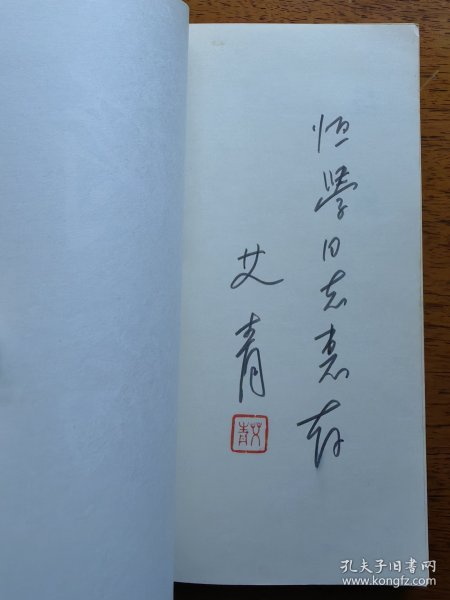 恒学同志惠存
艾青
艾青
孔夫子旧书网
www.kongfz.com